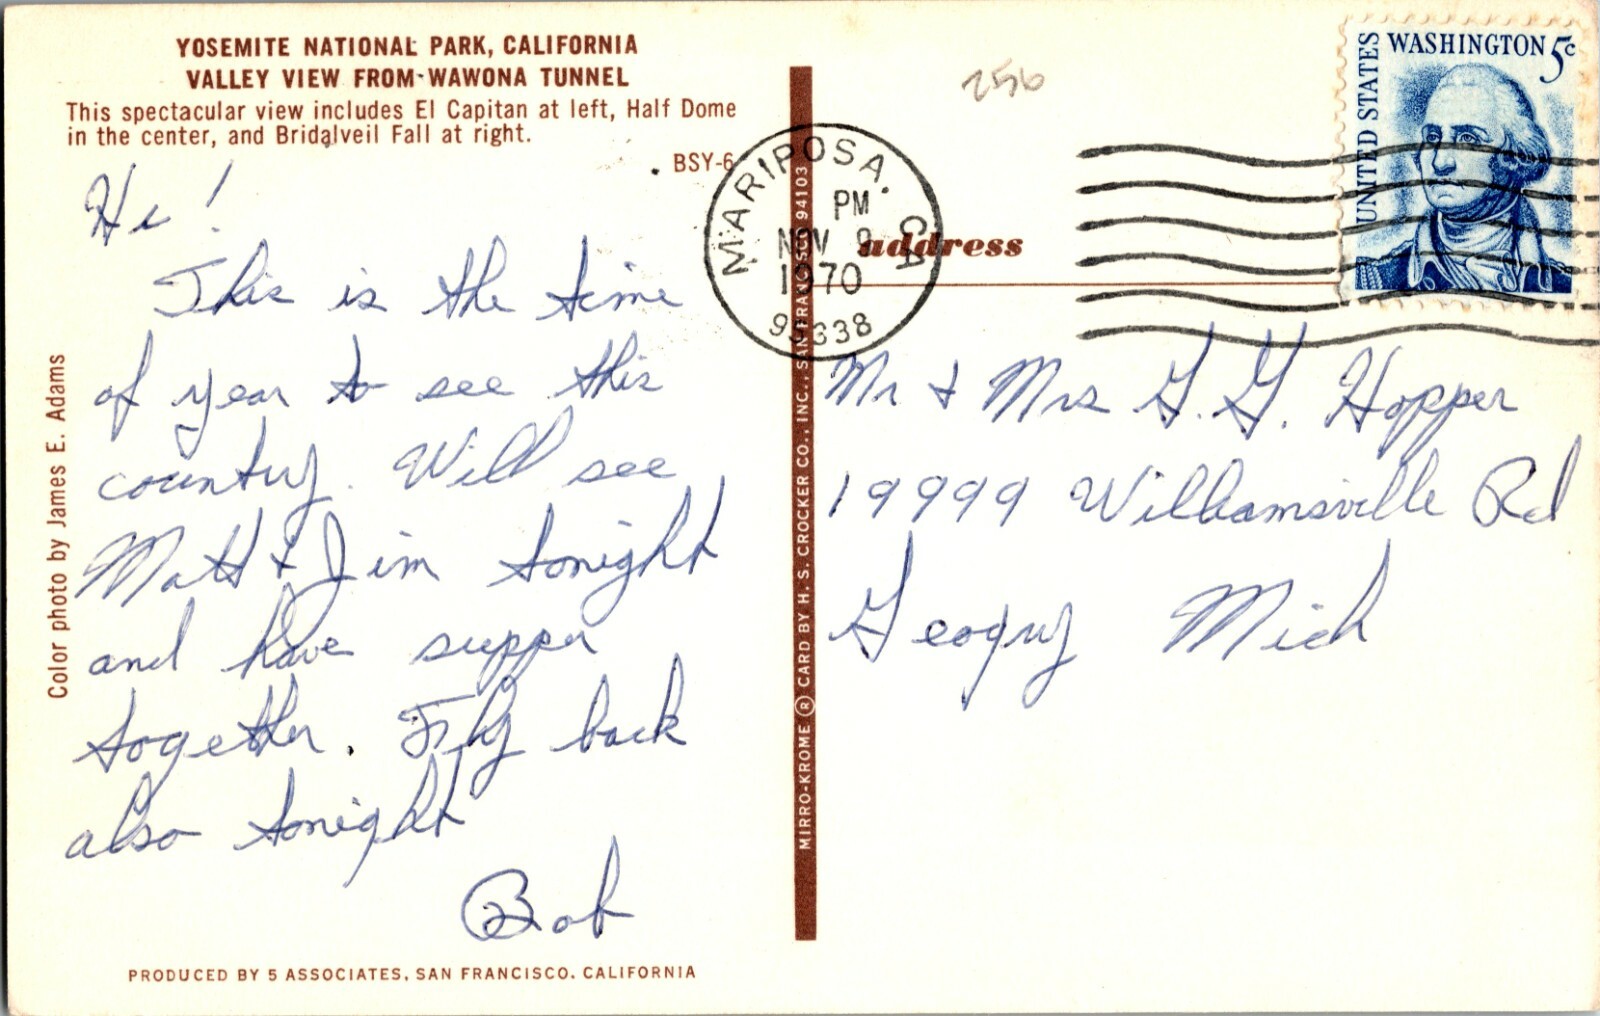 YOSEMITE NATIONAL PARK, CALIFORNIA
VALLEY VIEW FROM WAWONA TUNNEL
This spectacular view includes El Capitan at left, Half Dome
in the center, and Bridalveil Fall at right.
BSY-6
Hi!
This is the time
of year to see this
country. Will see
Matt & Jim tonight
and have supper
together. Fly back
also tonight
Bob
Color photo by James E. Adams
PRODUCED BY 5 ASSOCIATES, SAN FRANCISCO, CALIFORNIA
MIRRO-KROME ® CARD BY H. S. CROCKER CO., INC., SAN FRANCISCO, 94103
256
MARIPOSA, CA
PM
NOV 9
1970
95338
address
UNITED STATES
WASHINGTON 5c
Mr & Mrs G. G. Hopper
19999 Williamsville Rd
Gregory Mich